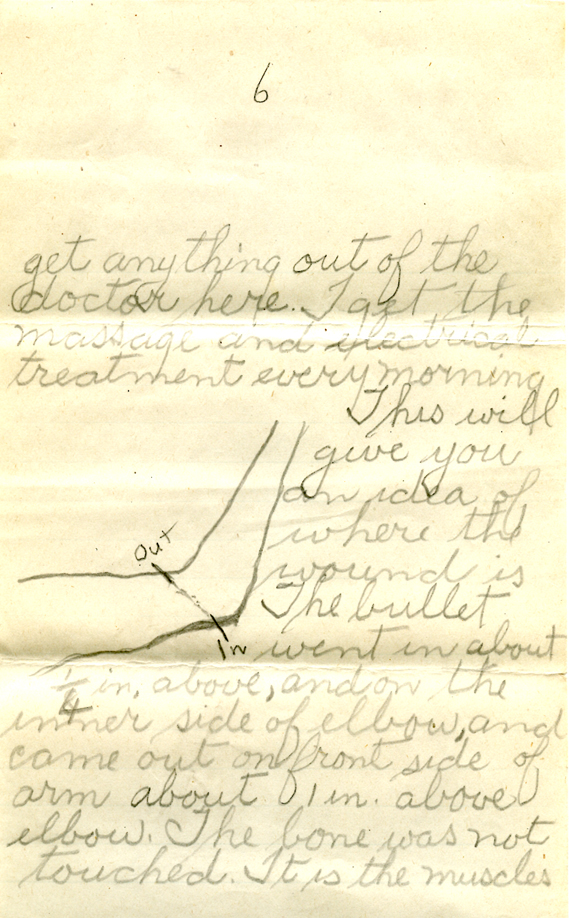 6
get anything out of the
doctor here. I get the
massage and electrical
treatment every morning
This will
give you
an idea of
where the
wound is
Out
The bullet
In
went in about
1/4 in. above, and on the
inner side of elbow, and
came out on front side of
arm about 1 in. above
elbow. The bone was not
touched. It is the muscles